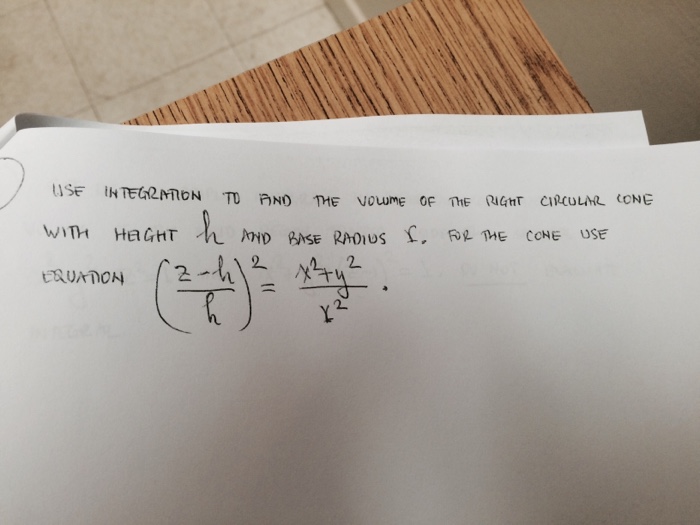 USE INTEGRATION TO FIND THE VOLUME OF THE RIGHT CIRCULAR CONE
WITH HEIGHT h AND BASE RADIUS r. FOR THE CONE USE
EQUATION ((z-h)/h)² = (x²+y²)/r².